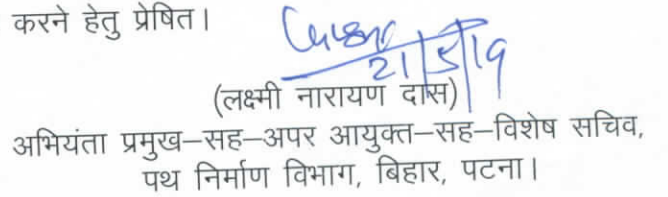 करने हेतु प्रेषित।
21/5/19
(लक्ष्मी नारायण दास)
अभियंता प्रमुख–सह–अपर आयुक्त–सह–विशेष सचिव,
पथ निर्माण विभाग, बिहार, पटना।